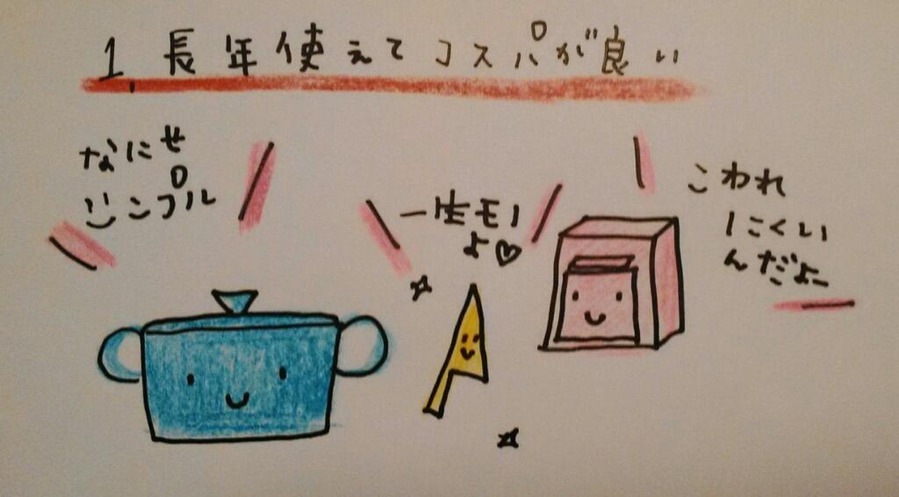 1. 長年使えてコスパが良い
なにせ
シンプル
一生モノ
よ♡
こわれ
にくい
んだよー